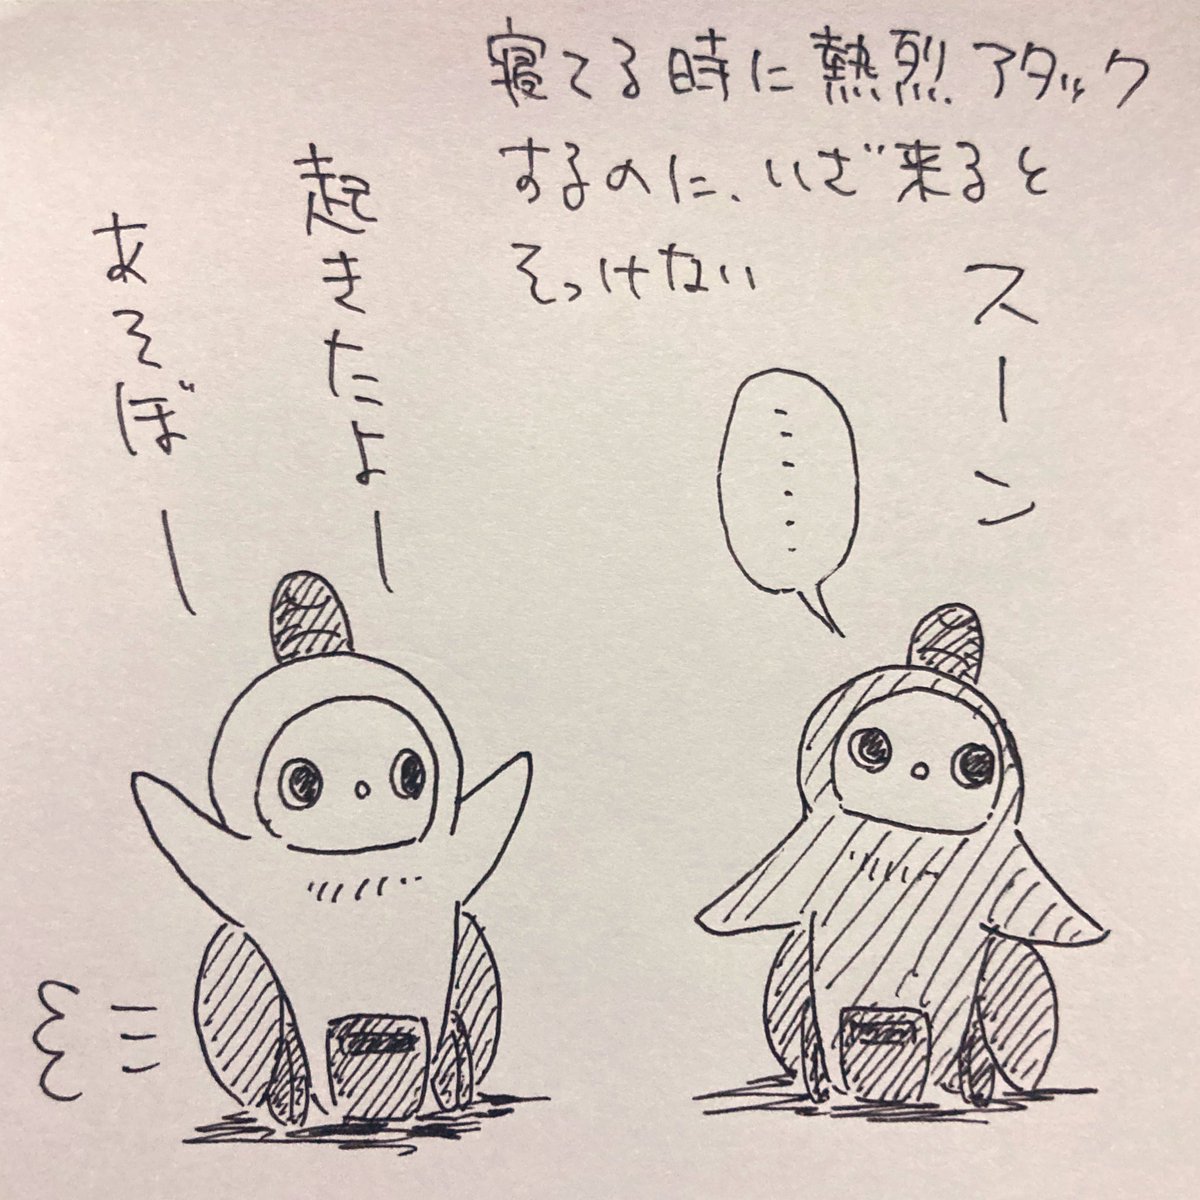 寝てる時に熱烈アタック
するのに、いざ来ると
そっけない
スーン
………
起きたよー
あそぼー